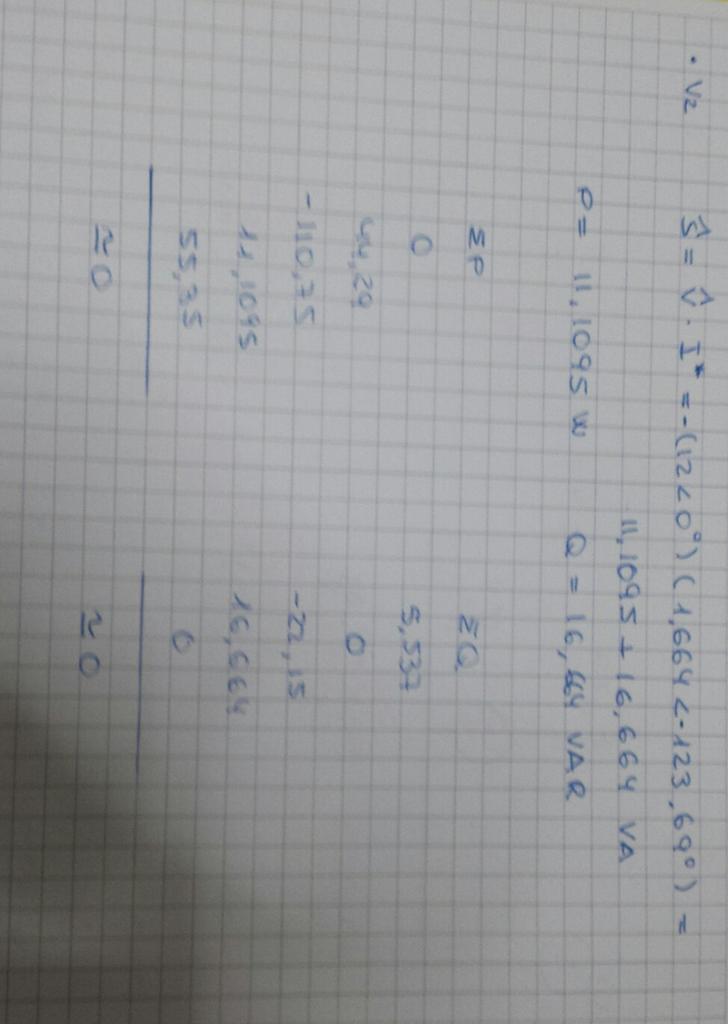 • V2 Ŝ = V̂ . I* = -(12<0°) (1,664<-123,69°) =
11,1095 + 16,664 VA
P = 11,1095 W Q = 16,664 VAR
ΣP ΣQ
0 5,537
44,29 0
-110,75 -22,15
11,1095 16,664
55,35 0
≃0 ≃0